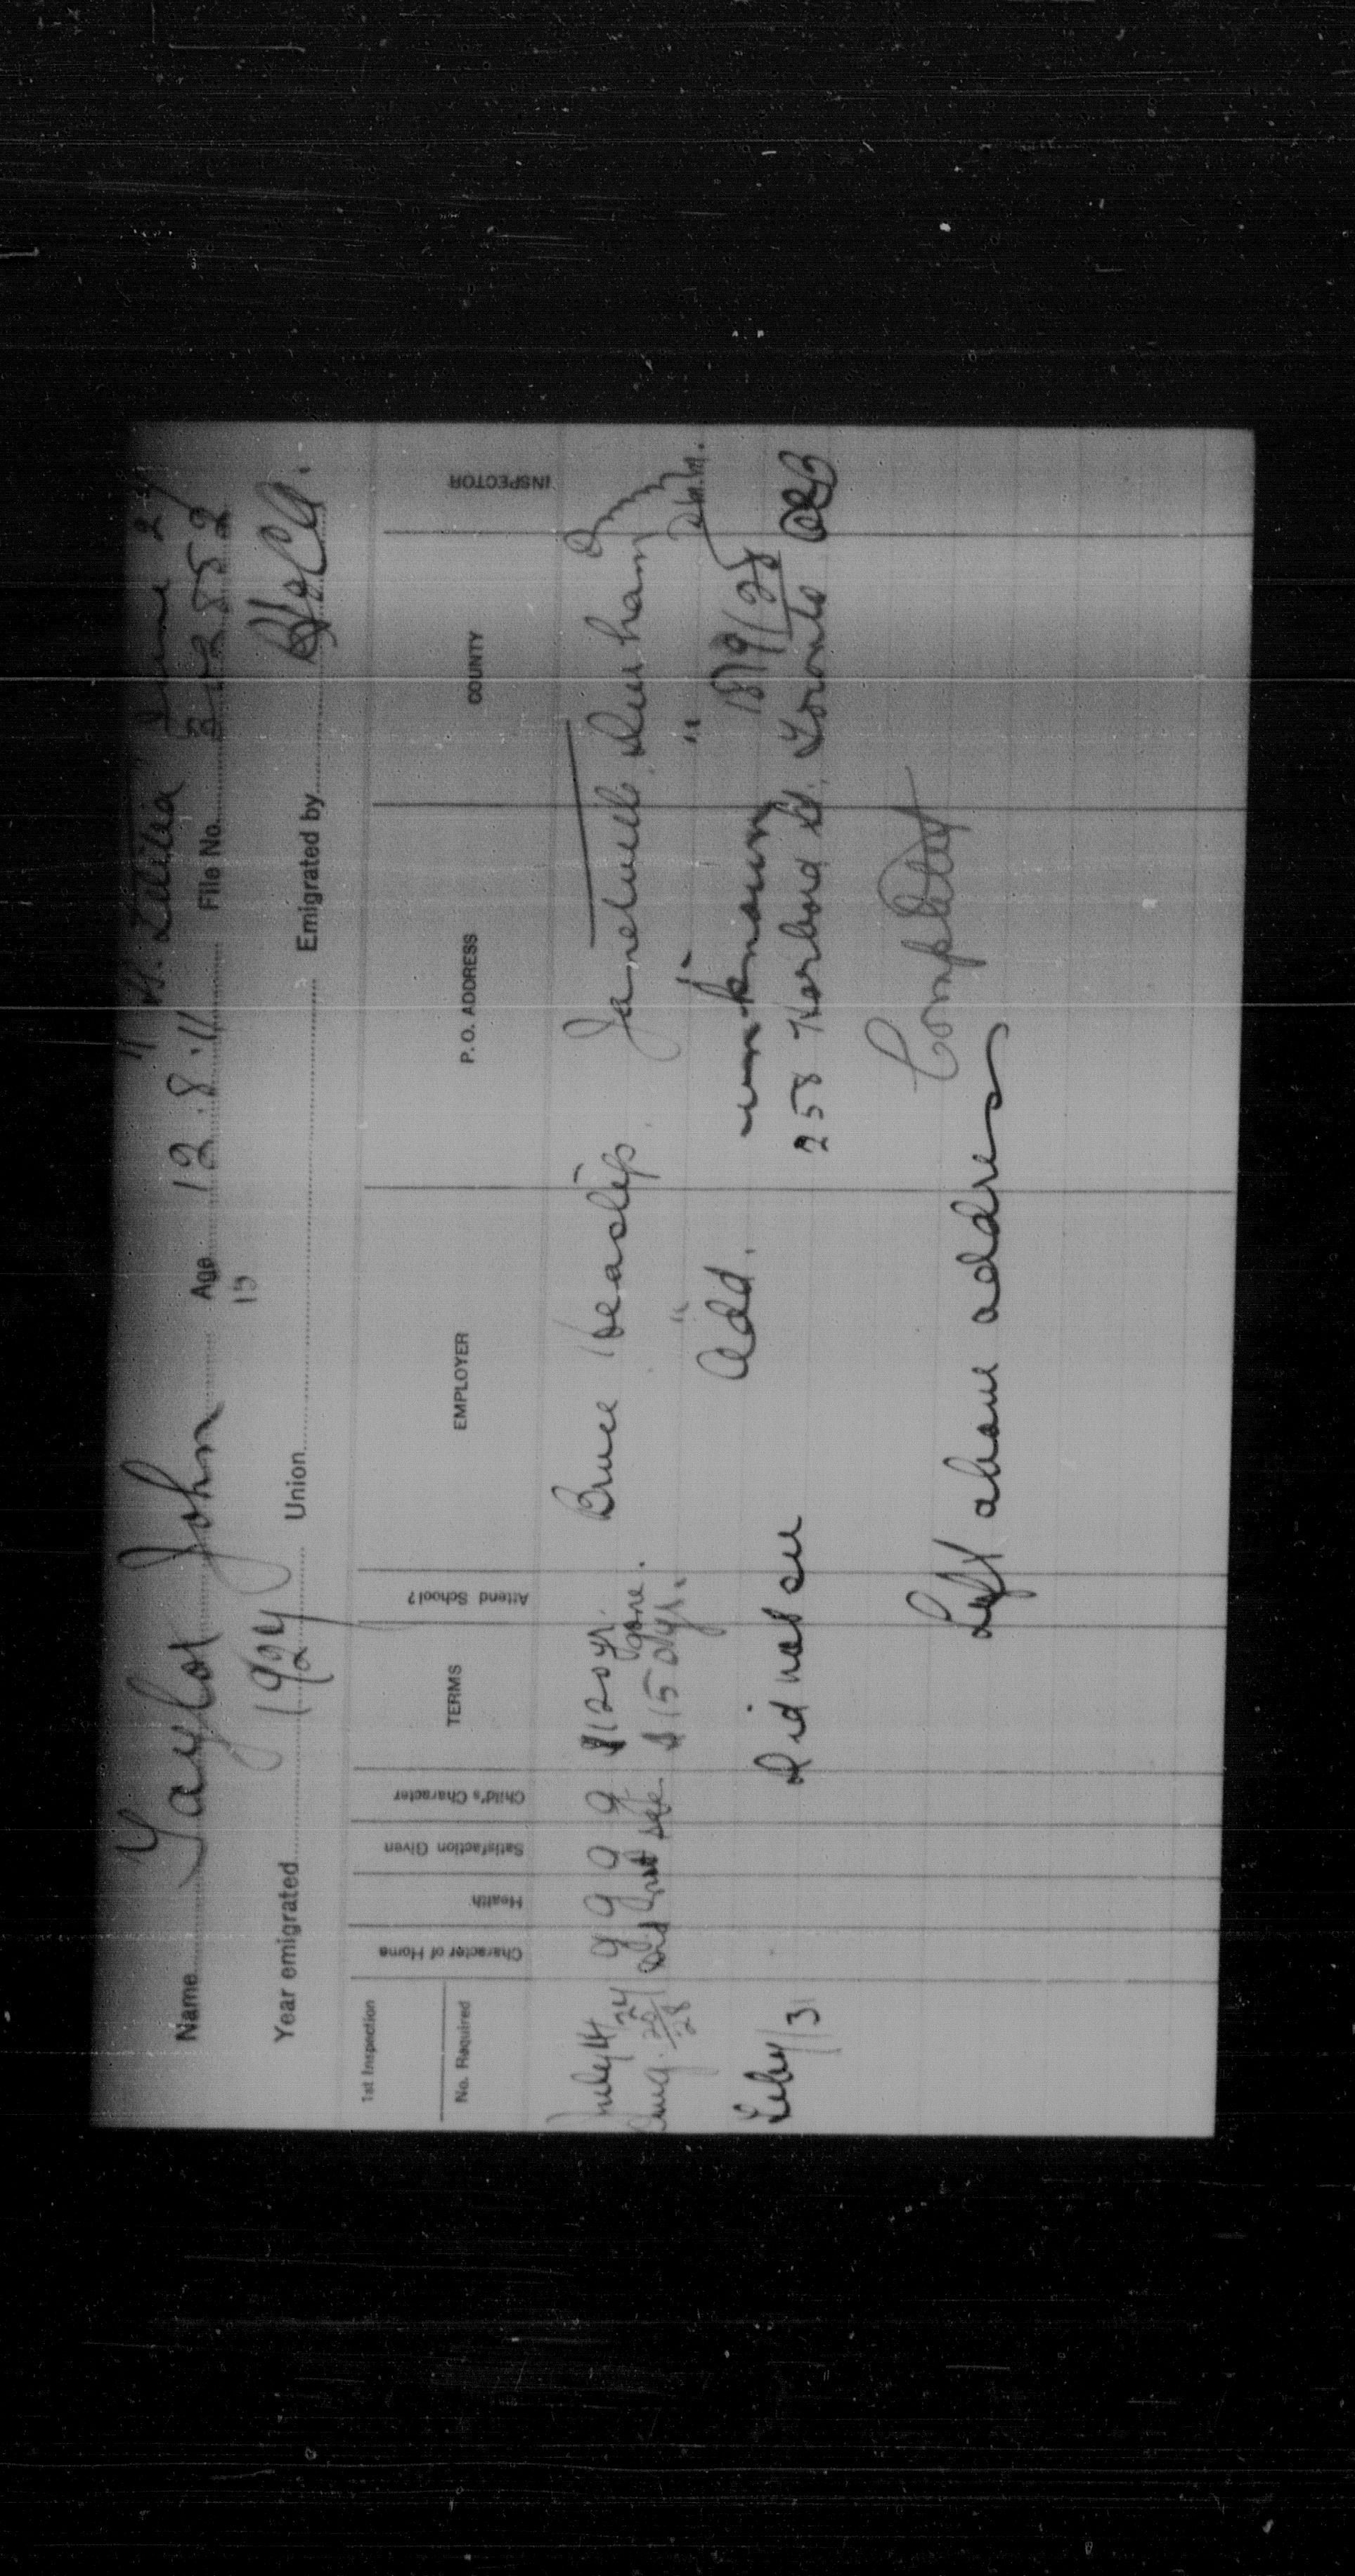 "St. Letitia" June 27
Name Taylor John Age 12 8.11 File No. 
15
Year emigrated 1924 Union Emigrated by
1st Inspection
No. Required Character of Home Health Satisfaction Given Child's Character TERMS Attend School? EMPLOYER P. O. ADDRESS COUNTY INSPECTOR
July 14/24 g g g g $120 yr. Bruce Heaslip. Janetville. Durham
gone.
Aug. 28 Did not see $150 yr. " " " D.M.M.
Add. unknown 1879/28
Feby/31 Did not see 258 Harbord St. Toronto
Completed
Left above address